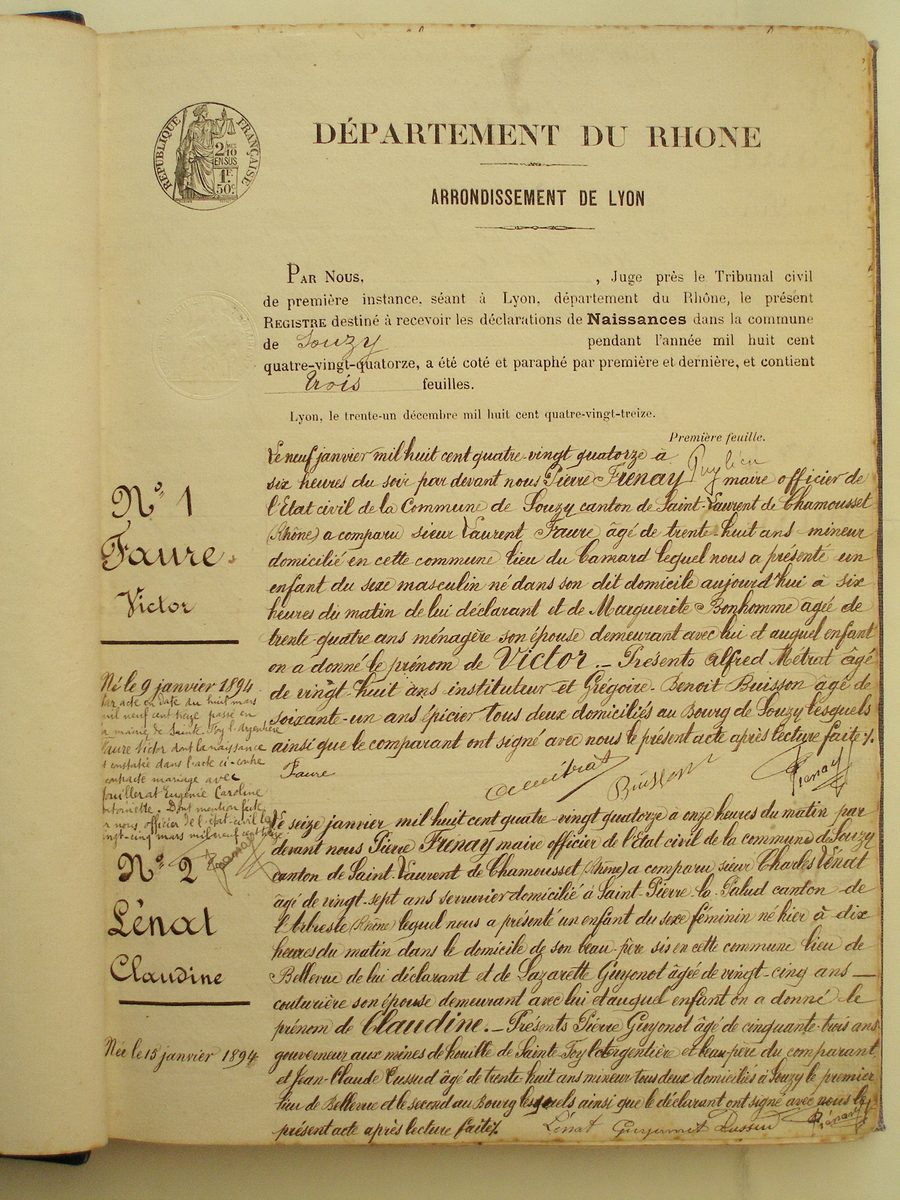 RÉPUBLIQUE FRANÇAISE
2/10 EN SUS
1F. 50c.
DÉPARTEMENT DU RHONE
ARRONDISSEMENT DE LYON
PAR NOUS, , Juge près le Tribunal civil
de première instance, séant à Lyon, département du Rhône, le présent
REGISTRE destiné à recevoir les déclarations de Naissances dans la commune
de Souzy pendant l'année mil huit cent
quatre-vingt-quatorze, a été coté et paraphé par première et dernière, et contient
trois feuilles.
Lyon, le trente-un décembre mil huit cent quatre-vingt-treize.
Première feuille.
N° 1
Faure
Victor
Né le 9 janvier 1894
Par acte en date du huit mars
mil neuf cent treize passé en
la mairie de Sainte Foy l'Argentière
Faure Victor dont la naissance
est constatée dans l'acte ci-contre
contracté mariage avec
Eugénie Caroline
Antoinette. Dont mention faite
par nous officier de l'état-civil le
vingt-cinq mars mil neuf cent treize
Le neuf janvier mil huit cent quatre-vingt quatorze à
six heures du soir par devant nous Pierre Frenay maire officier de
l'Etat civil de la Commune de Souzy canton de Saint-Laurent de Chamousset
(Rhône) a comparu sieur Laurent Faure âgé de trente-huit ans mineur
domicilié en cette commune lieu du Camard lequel nous a présenté un
enfant du sexe masculin né dans son dit domicile aujourd'hui à six
heures du matin de lui déclarant et de Marguerite Bonhomme âgée de
trente-quatre ans ménagère son épouse demeurant avec lui et auquel enfant
on a donné le prénom de Victor. — Présents Alfred Métrat âgé
de vingt huit ans instituteur et Grégoire-Benoit Buisson âgé de
soixante-un ans épicier tous deux domiciliés au Bourg de Souzy lesquels
ainsi que le comparant ont signé avec nous le présent acte après lecture faite %.
Faure Métrat Buisson Frenay
N° 2
Lénat
Claudine
Née le 15 janvier 1894
Le seize janvier mil huit cent quatre-vingt quatorze à onze heures du matin par
devant nous Pierre Frenay maire officier de l'Etat civil de la commune de Souzy
canton de Saint-Laurent de Chamousset (Rhône) a comparu sieur Charles Lénat
âgé de vingt-sept ans serrurier domicilié à Saint-Pierre-la-Palud canton de
l'Arbresle (Rhône) lequel nous a présenté un enfant du sexe féminin né hier à dix
heures du matin dans le domicile de son beau-père sis en cette commune lieu de
Bellevue de lui déclarant et de Lazarette Guyonot âgée de vingt-cinq ans —
couturière son épouse demeurant avec lui et auquel enfant on a donné le
prénom de Claudine. — Présents Pierre Guyonot âgé de cinquante-trois ans
gouverneur aux mines de houille de Sainte-Foy l'Argentière et beau-père du comparant
et Jean-Claude Dussud âgé de trente-huit ans mineur tous deux domiciliés à Souzy le premier
lieu de Bellevue et le second au Bourg lesquels ainsi que le déclarant ont signé avec nous le
présent acte après lecture faite %. Lénat Guyonnot Dussud Frénay